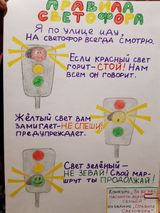 ПРАВИЛА
СВЕТОФОРА
Я по улице иду,
НА СВЕТОФОР ВСЕГДА СМОТРЮ.
ЕСЛИ КРАСНЫЙ СВЕТ
ГОРИТ-СТОЙ! НАМ
ВСЕМ ОН ГОВОРИТ.
ЖЁЛТЫЙ СВЕТ ВАМ
ЗАМИГАЕТ-НЕ СПЕШИ!
ПРЕДУПРЕЖДАЕТ.
СВЕТ ЗЕЛЁНЫЙ-
НЕ ЗЕВАЙ! СВОЙ МАР-
ШРУТ ТЫ ПРОДОЛЖАЙ!